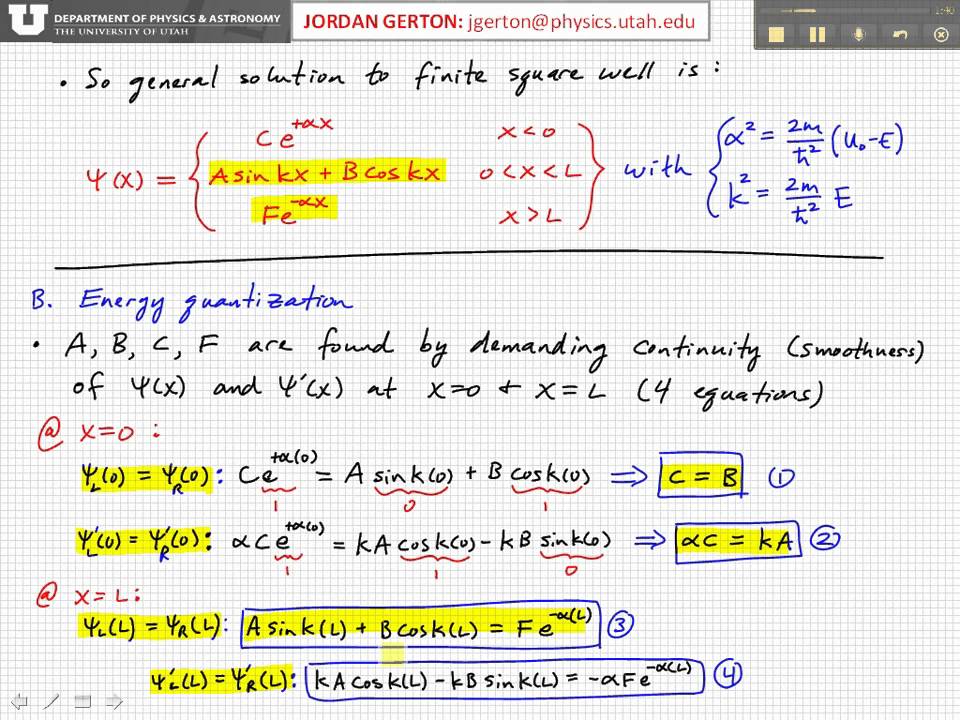 U DEPARTMENT OF PHYSICS & ASTRONOMY
THE UNIVERSITY OF UTAH
JORDAN GERTON: jgerton@physics.utah.edu
1:40
• So general solution to finite square well is:
Ψ(x) = { Ce^{+αx} x<0
A sin kx + B cos kx 0<x<L
Fe^{-αx} x>L } with { α² = 2m/ħ² (U₀-E)
k² = 2m/ħ² E
B. Energy quantization
• A, B, C, F are found by demanding continuity (smoothness)
of Ψ(x) and Ψ'(x) at x=0 & x=L (4 equations)
@ x=0:
Ψ_L(0) = Ψ_R(0): Ce^{+α(0)} = A sin k(0) + B cos k(0) ⇒ C = B ①
1 0 1
Ψ'_L(0) = Ψ'_R(0): αCe^{+α(0)} = kA cos k(0) - kB sin k(0) ⇒ αC = kA ②
1 1 0
@ x=L:
Ψ_L(L) = Ψ_R(L): A sin k(L) + B cos k(L) = Fe^{-α(L)} ③
Ψ'_L(L) = Ψ'_R(L): kA cos k(L) - kB sin k(L) = -αFe^{-α(L)} ④